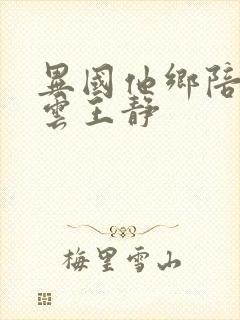 異國他鄉陪
雲王靜
梅里雪山